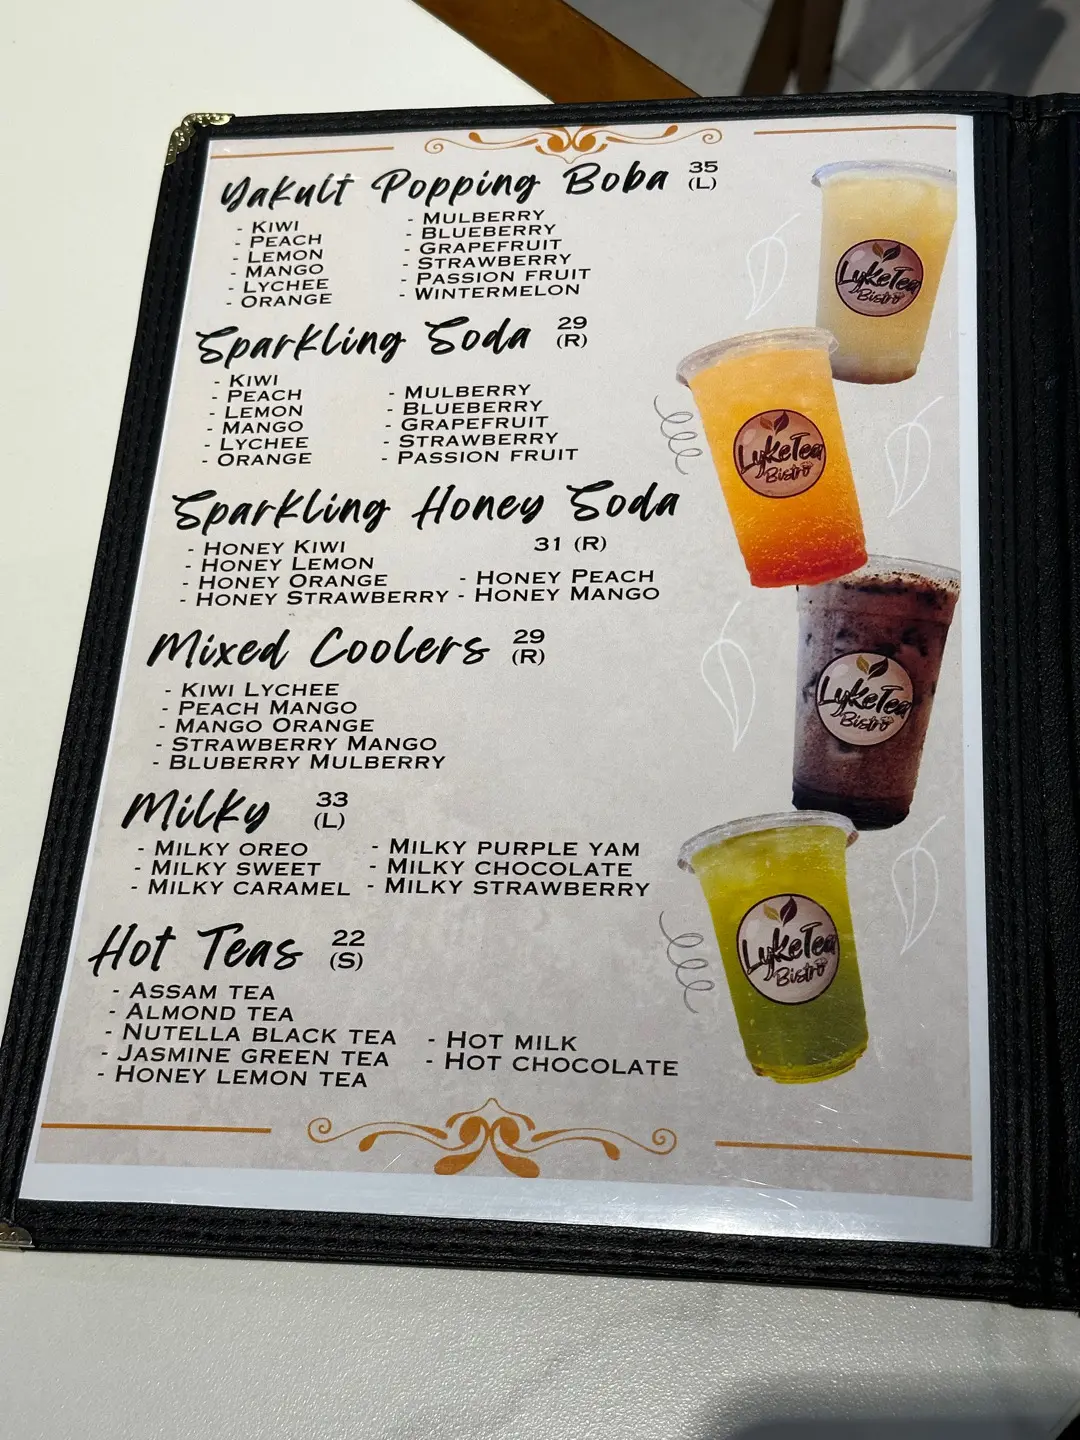 Yakult Popping Boba 35 (L)
- KIWI
- PEACH
- LEMON
- MANGO
- LYCHEE
- ORANGE
- MULBERRY
- BLUEBERRY
- GRAPEFRUIT
- STRAWBERRY
- PASSION FRUIT
- WINTERMELON
Sparkling Soda 29 (R)
- KIWI
- PEACH
- LEMON
- MANGO
- LYCHEE
- ORANGE
- MULBERRY
- BLUEBERRY
- GRAPEFRUIT
- STRAWBERRY
- PASSION FRUIT
Sparkling Honey Soda
31 (R)
- HONEY KIWI
- HONEY LEMON
- HONEY ORANGE
- HONEY STRAWBERRY
- HONEY PEACH
- HONEY MANGO
Mixed Coolers 29 (R)
- KIWI LYCHEE
- PEACH MANGO
- MANGO ORANGE
- STRAWBERRY MANGO
- BLUBERRY MULBERRY
Milky 33 (L)
- MILKY OREO
- MILKY SWEET
- MILKY CARAMEL
- MILKY PURPLE YAM
- MILKY CHOCOLATE
- MILKY STRAWBERRY
Hot Teas 22 (S)
- ASSAM TEA
- ALMOND TEA
- NUTELLA BLACK TEA
- JASMINE GREEN TEA
- HONEY LEMON TEA
- HOT MILK
- HOT CHOCOLATE
LykeTea
Bistro
LykeTea
Bistro
LykeTea
Bistro
LykeTea
Bistro